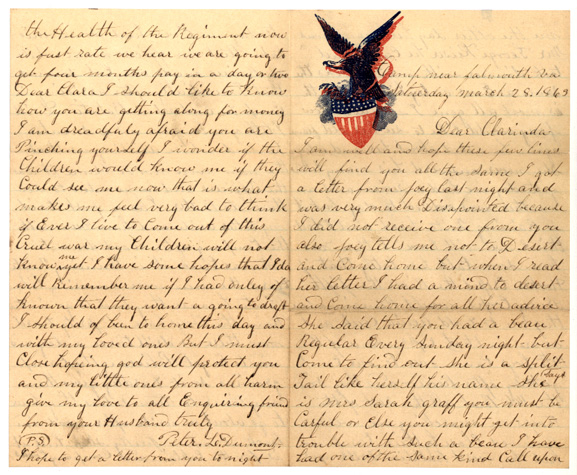 Camp near Falmouth Va
Saturday March 28. 1863
Dear Clarinda
I am well and hope these few lines
will find you all the same I got
a letter from Joey last night and
was very much Disapointed because
I did not receive one from you
also Joey tells me not to Desert
and Come home but when I read
her letter I had a mind to desert
and Come home for all her advice
She said that you had a beau
Regular Every Sunday night but
Come to find out she is a split
Tail like herself his name she Says
is Mrs Sarah graff you must be
Carful or Else you might get into
trouble with Such a beau I have
had one of the same kind Call upon
the Health of the Regiment now
is first rate we hear we are going to
get four months pay in a day or two
Dear Clara I should like to know
how you are getting along for money
I am dreadfuly afraid you are
Pinching yourself I wonder if the
Children would know me if they
Could see me now that is what
makes me feel very bad to think
if Ever I live to Come out of this
Cruel war my Children will not
know me yet I have some hopes that Ida
will Remember me if I had onley of
known that they want a going to draft
I should of been to home this day and
with my loved ones But I must
Close hopeing god will protect you
and my little ones from all harm
give my love to all Enquiring friend
from your Husband truly
Peter. L. Dumont.
P.S
I hope to get a letter from you to night